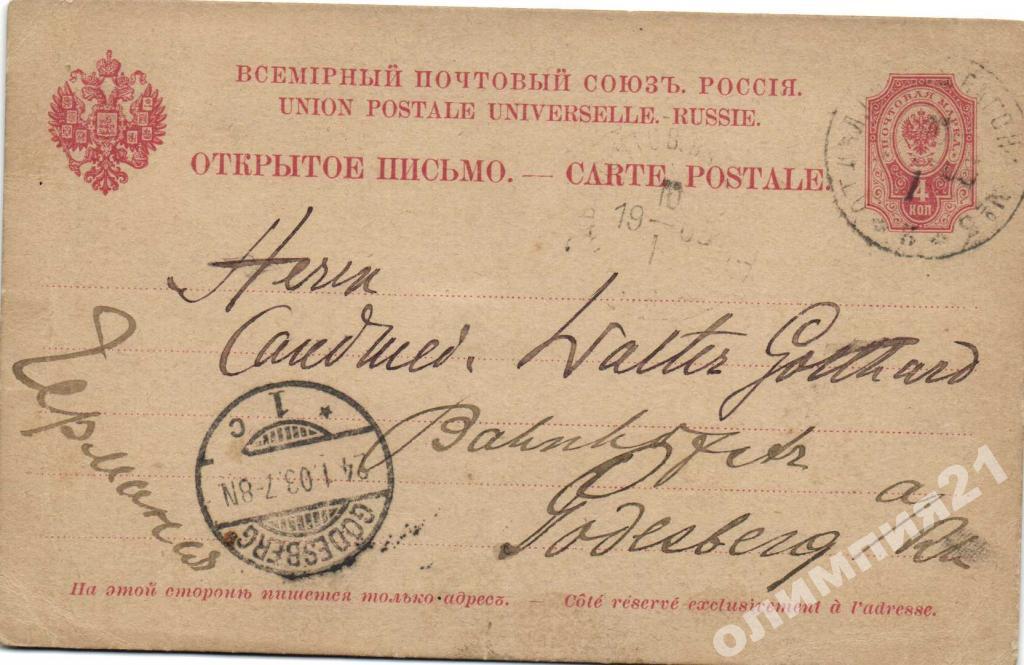 ВСЕМІРНЫЙ ПОЧТОВЫЙ СОЮЗЪ. РОССІЯ.
UNION POSTALE UNIVERSELLE. RUSSIE.
ОТКРЫТОЕ ПИСЬМО. — CARTE POSTALE.
ПОЧТОВАЯ МАРКА
4
КОП
19 03
Herrn
Candmed. Walter Gotthard
Bahnhofstr
Godesberg a
Германія
1 C
24.1.03.7-8N
GODESBERG
На этой сторонѣ пишется только адресъ. — Côté réservé exclusivement à l'adresse.
олимпия21